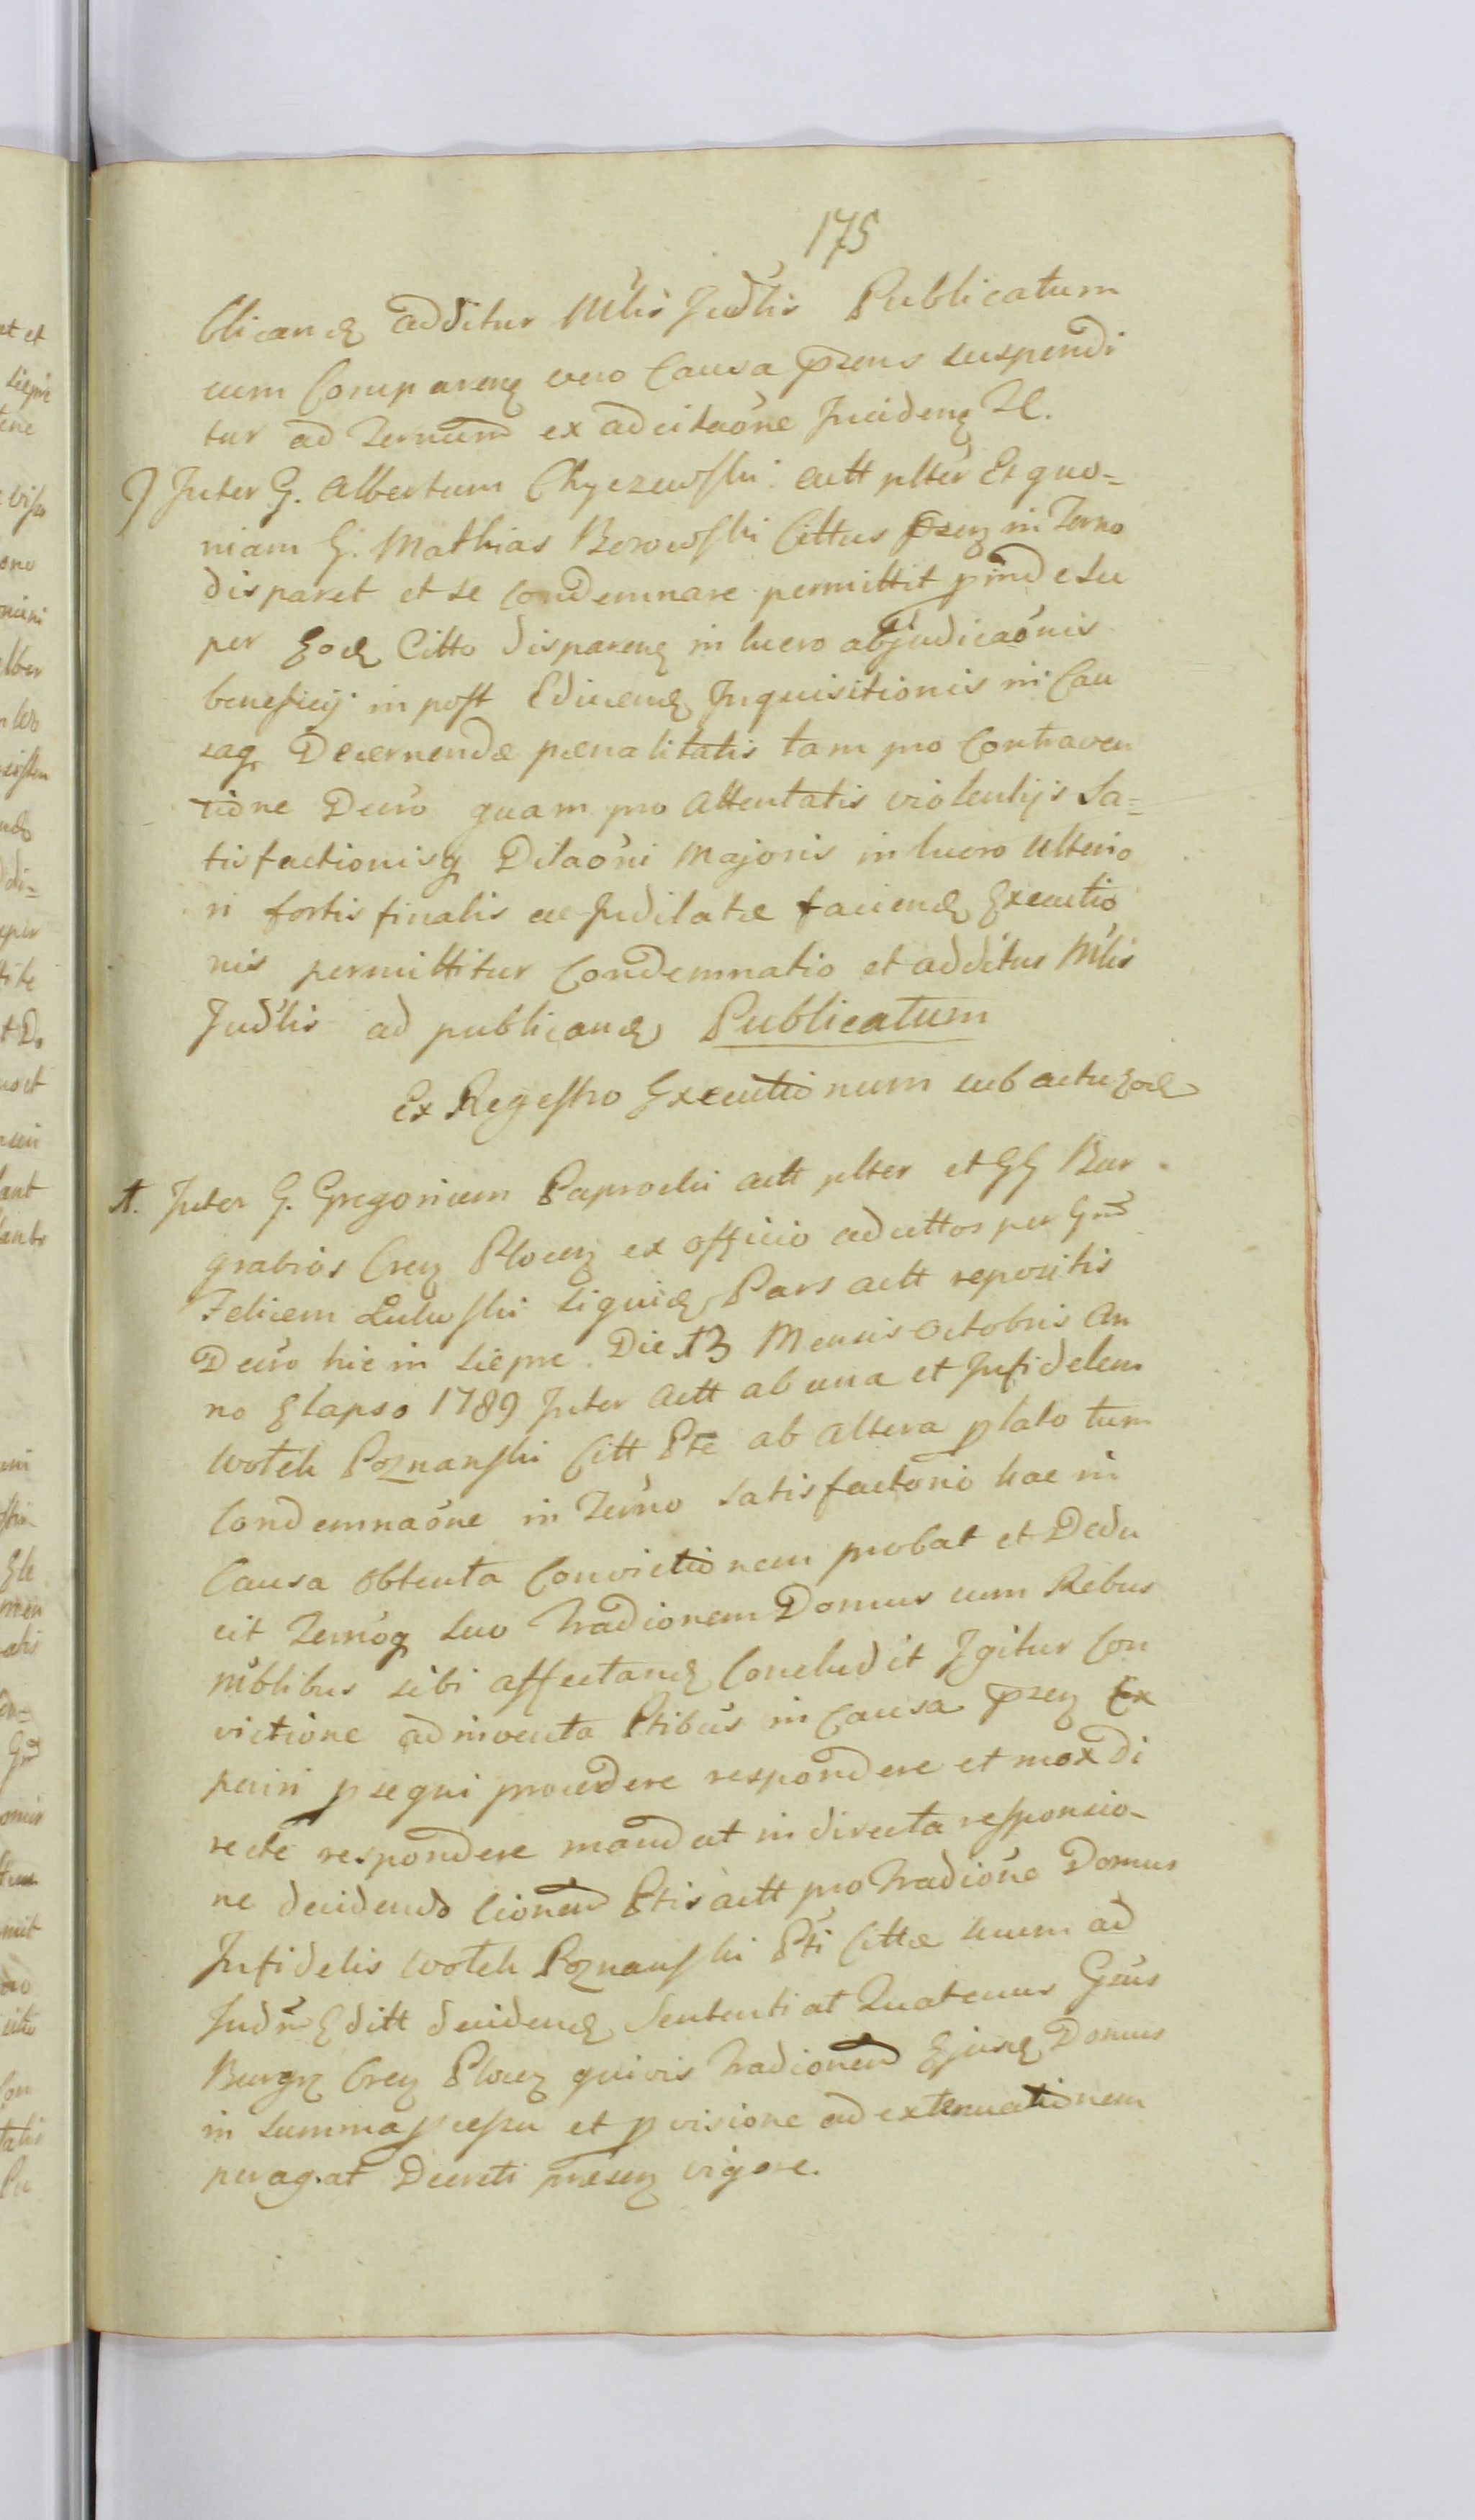 175
blicand additur Mlis Judlis Publicatum
cum Comparen vero Causa pzens suspendi
tur ad Ternum ex adcitaone Inciden Il.
Inter G. Albertum Chyczewski actt plter Et quo=
niam G. Mathias Borowski Cittus pzen in Terno
disparet et se Condemnare permittit pinde su
per Eod Citto disparen in lucro abjudicaonis
beneficij in post Educend Inquisitionis in Cau
saq Decernendæ pænalitatis tam pro Contraven
tione Decro quam pro Attentatis violentijs Sa=
tisfactionisq Dilaoni Majoris in lucro Ulterio
ri fortis finalis ac Judilatæ faciend Executio
nis permittitur Condemnatio et additus Mlis
Judlis ad publicand Publicatum
Ex Regestro Executionum sub actu Eod
1. Inter G. Gregorium Paprocki actt plter et GG Bur
grabios Cren Plocen ex officio adcittos per Gm
Felicem Lulewski Signid Pars actt repositis
Decro hic in Sierpc Die 13 Mensis Octobris An
no Elapso 1789 Inter Actt ab una et Infidelem
Wotek Poznanski Citt Pte ab altera plato tum
Condemnaone in Terno satisfactorio hac in
Causa obtenta Convictionem probat et Dedu
cit Ternoq suo Tradionem Domus cum Rebus
mblibus sibi affectand Concludit Igitur Con
victione adinventa Ptibus in Causa pzen Ex
periri psequi procedere respondere et mox di
recte respondere mandat in directa responsio-
ne decidendo Cionem Ptis actt pro Tradione Domus
Infidelis Wotek Poznanski Pti Cittæ suum ad
Judm Editt deciden Sententiat Quatenus Gsus
Burgr Cren Plocen quivis Tradionem Ejusd Domus
in summa et pvisione ad extenuationem
peragat Decreti præsen vigore.